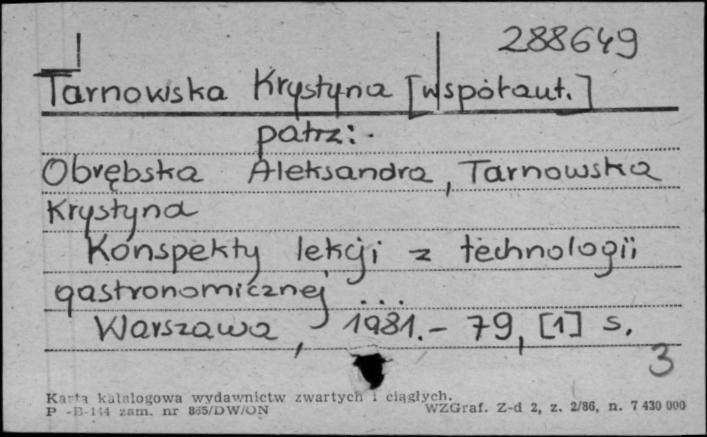 288649
Tarnowska Krystyna [współaut.]
patrz:
Obrębska Aleksandra, Tarnowska
Krystyna
Konspekty lekcji z technologii
gastronomicznej ...
Warszawa, 1981.- 79, [1] s.
3
Karta katalogowa wydawnictw zwartych i ciągłych.
P -B-144 zam. nr 865/DW/ON WZGraf. Z-d 2, z. 2/86, n. 7 430 000